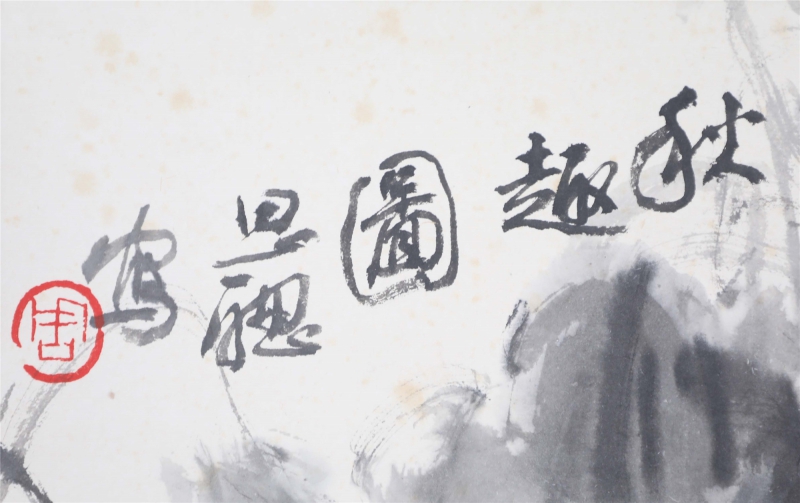 秋趣圖旦聰寫
周